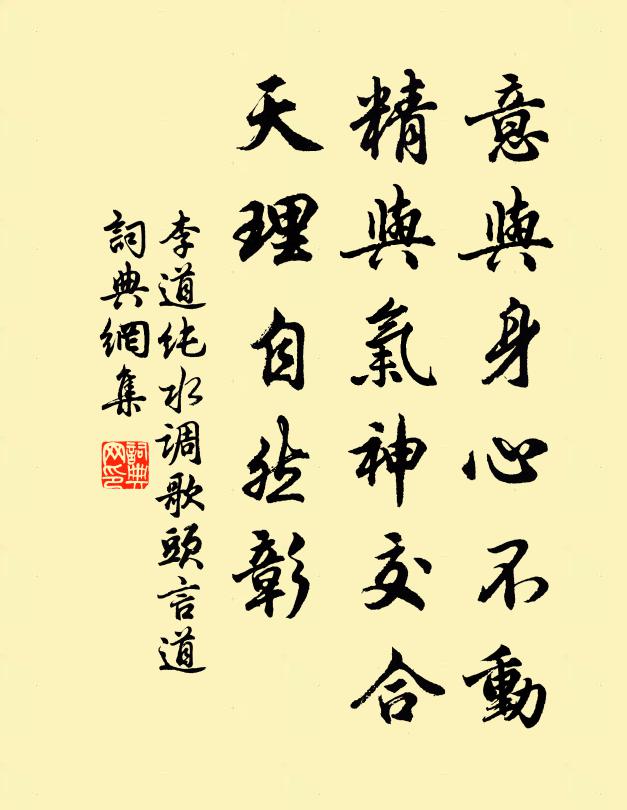 意與身心不動
精與氣神交合
天理自然彰
李道纯水调歌頭言道
詞典網集
詞典
网印